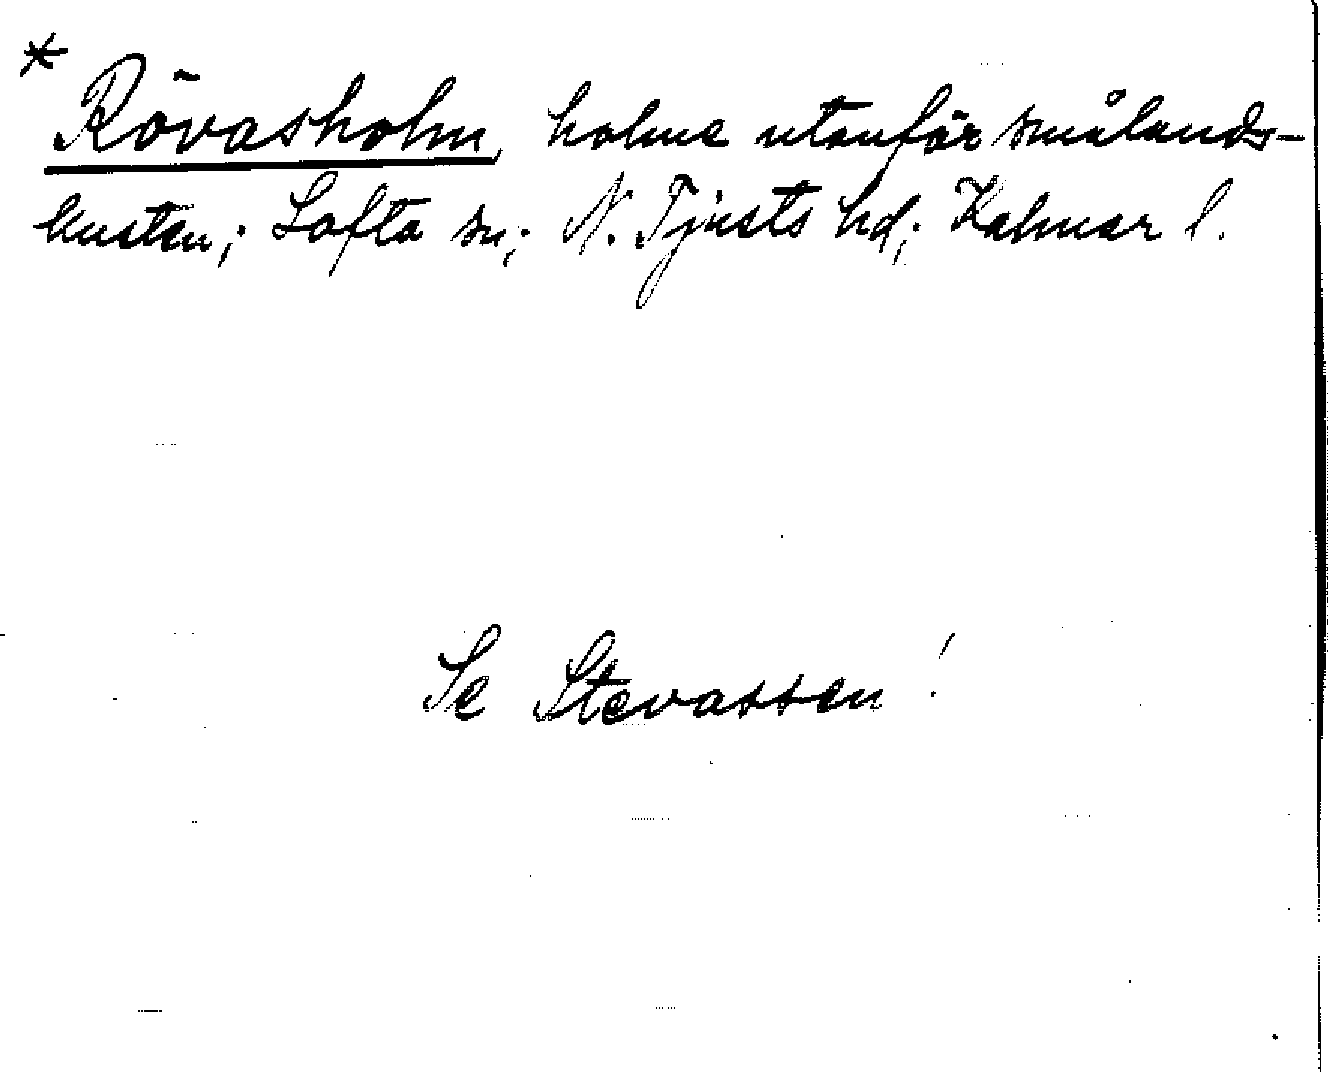 * Rövasholm, holme utanför smålands-
kusten; Lofta sn; N. Tjusts hd; Kalmar l.
Se Stevassen!